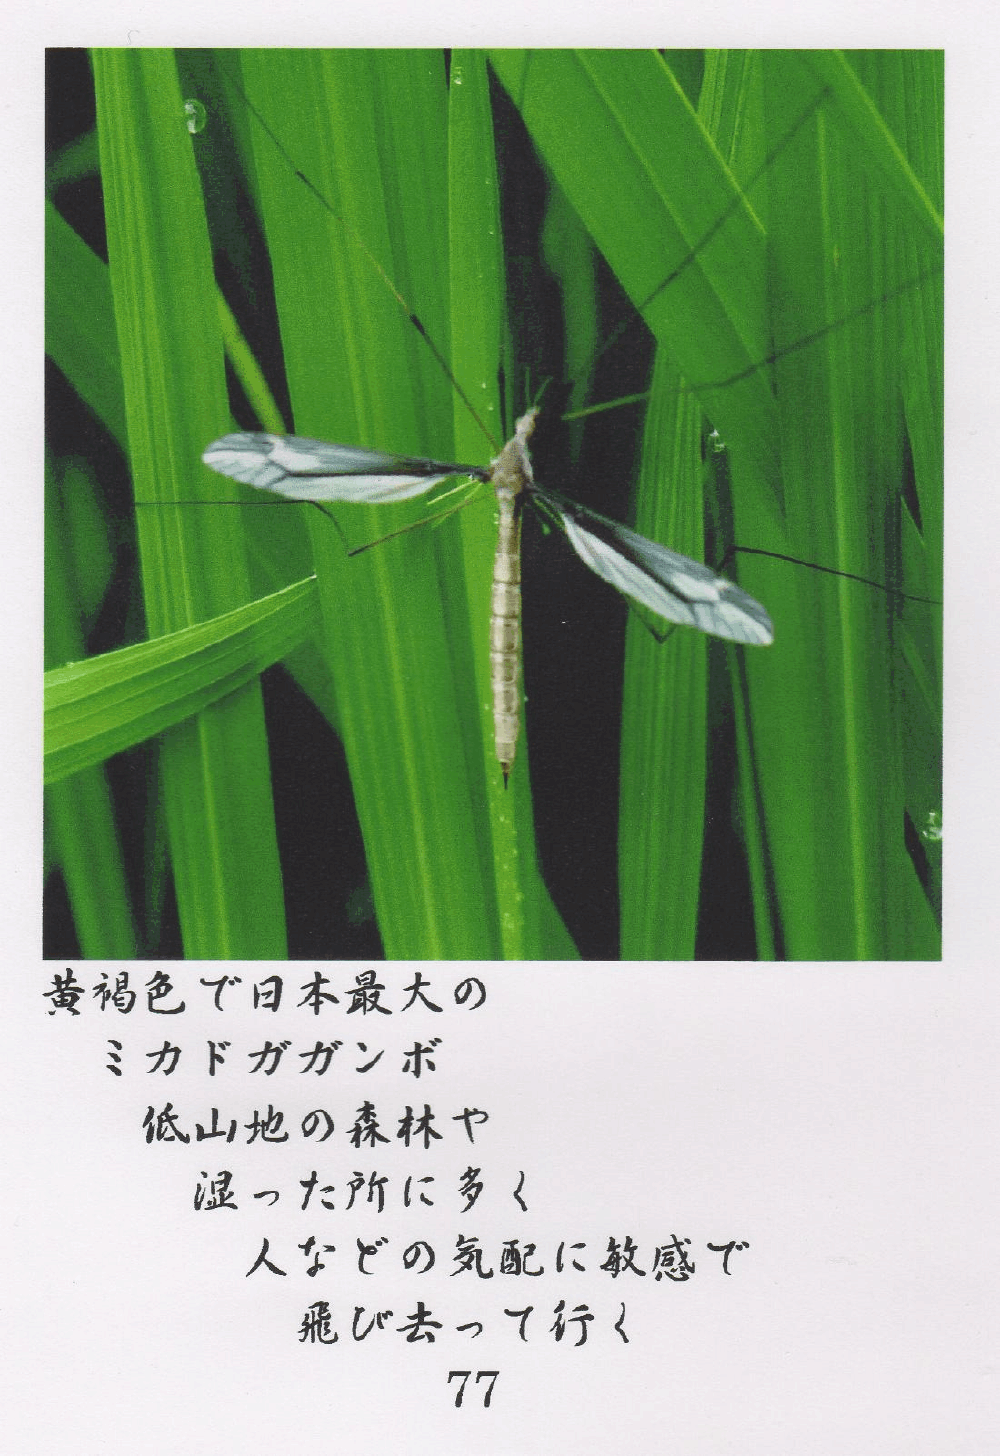 黄褐色で日本最大の
ミカドガガンボ
低山地の森林や
湿った所に多く
人などの気配に敏感で
飛び去って行く
77